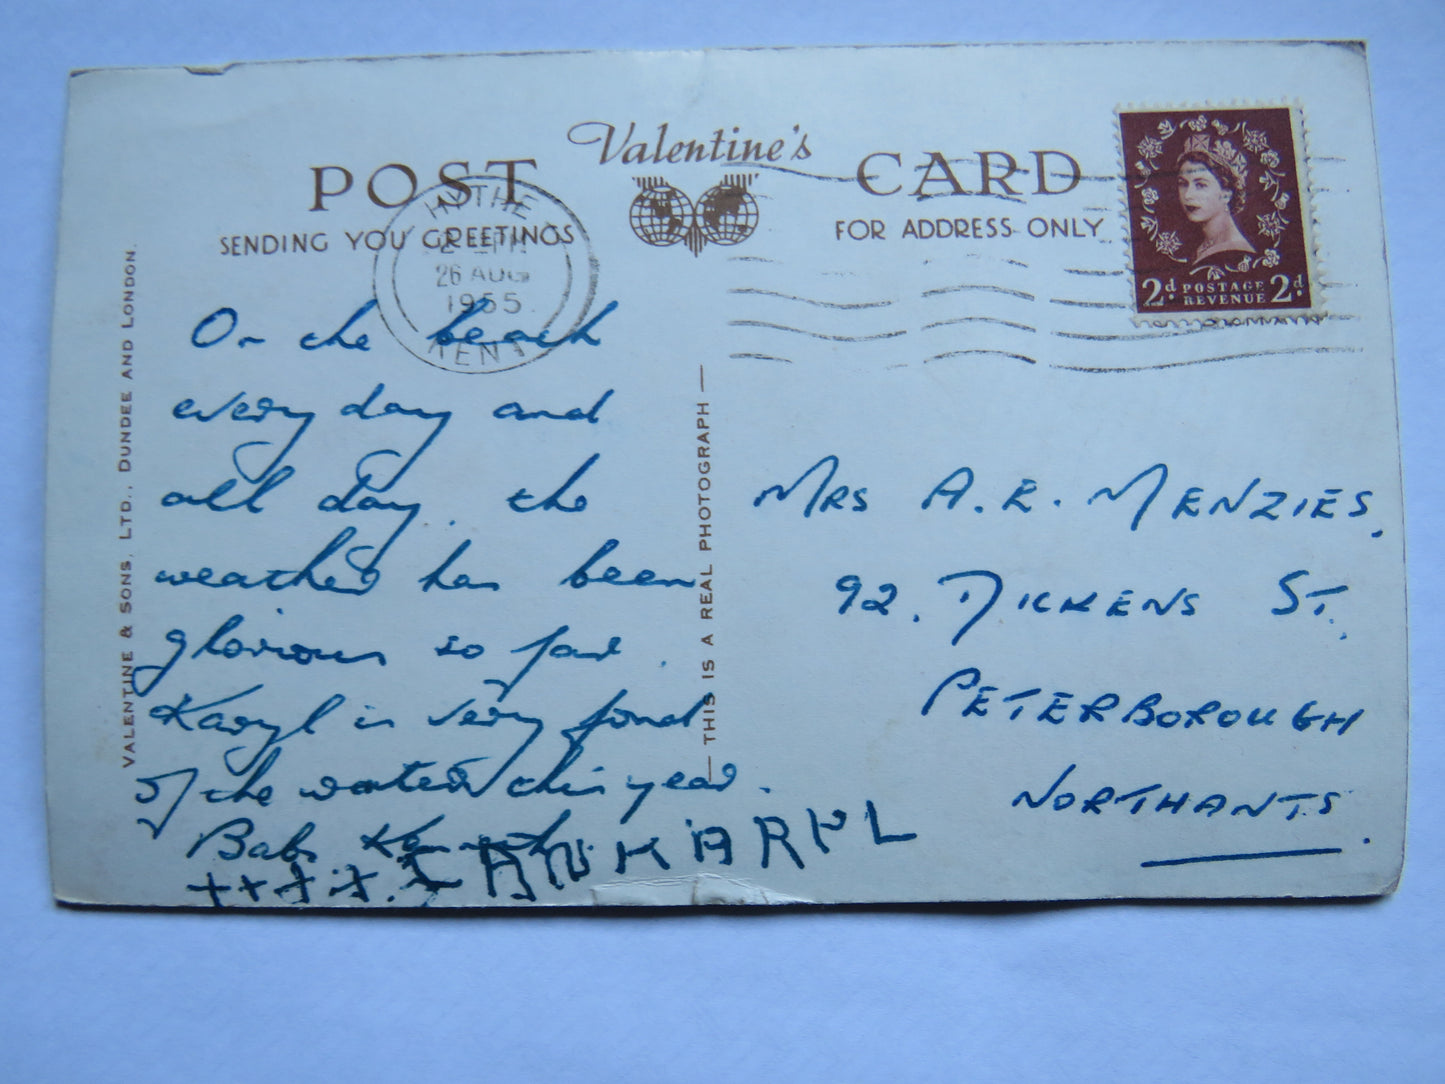 Valentine's
POST CARD
SENDING YOU GREETINGS
FOR ADDRESS ONLY
HYTHE
26 AUG
1955
KENT
2d POSTAGE REVENUE 2d
VALENTINE & SONS, LTD., DUNDEE AND LONDON.
THIS IS A REAL PHOTOGRAPH
On the beach
every day and
all day. the
weather has been
glorious so far.
Karyl is very fond
of the water this year.
Babs Kenneth
++++
KARYL
MRS A. E. MENZIES,
92. DICKENS ST.
PETERBOROUGH
NORTHANTS.